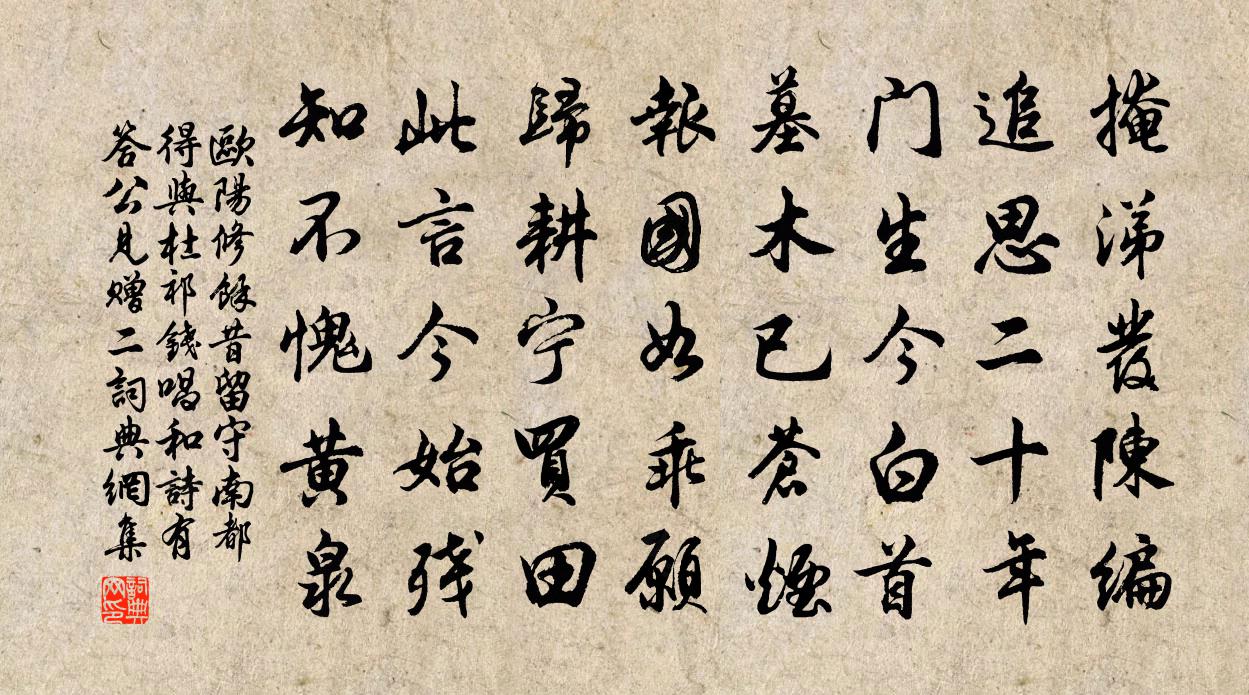 掩涕發陳編
追思二十年
门生今白首
墓木已蒼煙
報國如乖願
歸耕宁買田
此言今始踐
知不愧黄泉
歐陽修餘昔留守南都
得與杜祁錢唱和詩有
答公見贈二詞典網集
詞典
网印